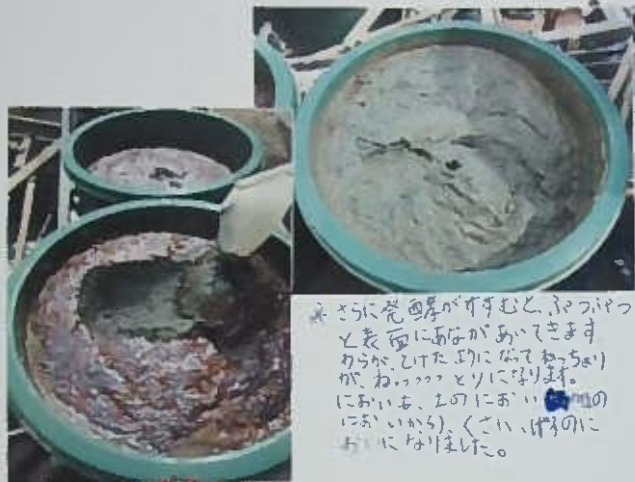 ※ さらに発酵がすすむと、ぷつぷつ
と表面にあながあいてきます
わらが、とけたようになってねっちょり
が、ねっっっっとりになります。
においも、土のにおい の
においから)、くさい、げろのに
おいになりました。